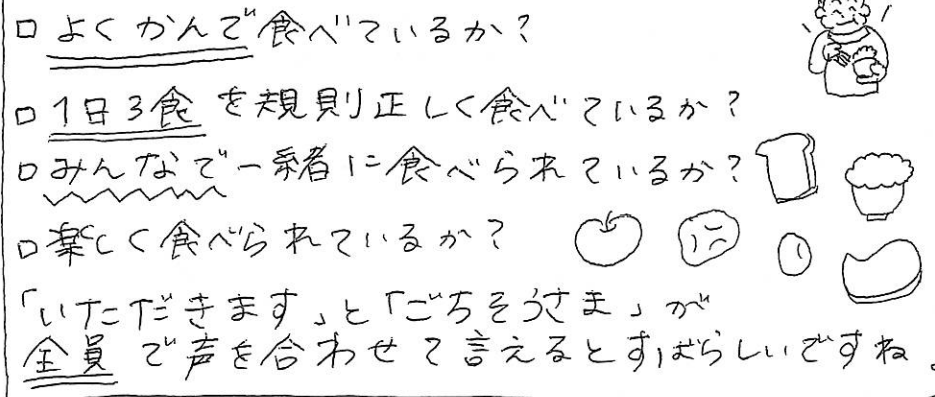 □ よくかんで食べているか？
□ 1日3食を規則正しく食べているか？
□ みんなで一緒に食べられているか？
□ 楽しく食べられているか？
「いただきます」と「ごちそうさま」が
全員で声を合わせて言えるとすばらしいですね。